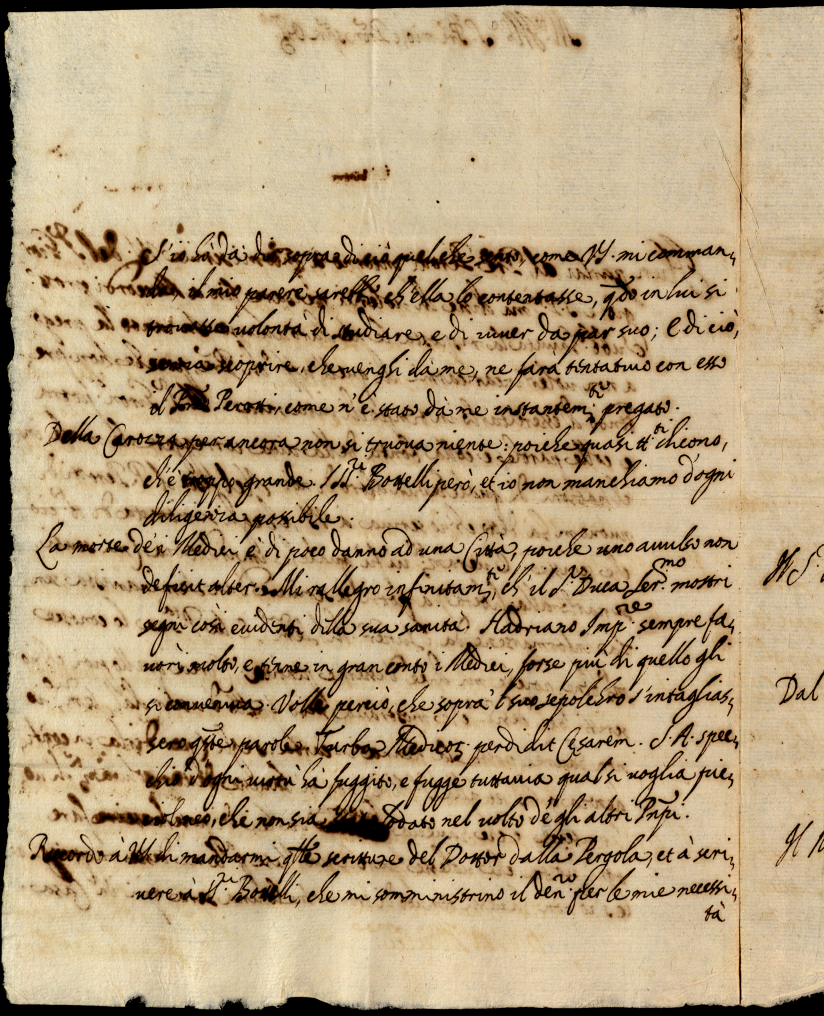 S'io hà da dir sopra di ciò quel che sento, come VS. mi comman,
da, il mio parere sarebbe ch'ella lo contentasse, qdo in lui si
trovasse volontà di studiare, e di viver da par suo; E di ciò,
senza scoprire, che venghi da me, ne farà tentativo con esso
il Perotti, come n'è stato da me instantemte pregato.
Della Carozza per ancora non si truova niente: poiche quasi tti dicono,
ch'è troppo grande. Botelli però, et io non manchiamo d'ogni
diligenza possibile.
La morte de i Medici è di poco danno ad una Città, poiche uno avulso non
deficit alter. Mi rallegro infinitamte, ch'il Sr Duca Sermo mostri
segni così evidenti della sua sanità. Hadriano Impre sempre fa,
vorì molto, e tenne in gran conto i Medici, forse più di quello gli
si conveniva. Volle perciò, che sopra 'l suo sepolchro s'intaglias,
sero qste parole Turba Medicor perdidit Cesarem. S. A. spec,
chio d'ogni virtù hà fuggito, e fugge tuttavia qual si voglia pic,
col neo, che non sia lodato nel volto de gli altri Pnpi.
Ricordo à VS. di mandarmi qlle scritture del Dottor dalla Pergola, et à scri,
vere à Botelli, che mi somministrino il denro per le mie necessi,
tà
Dal